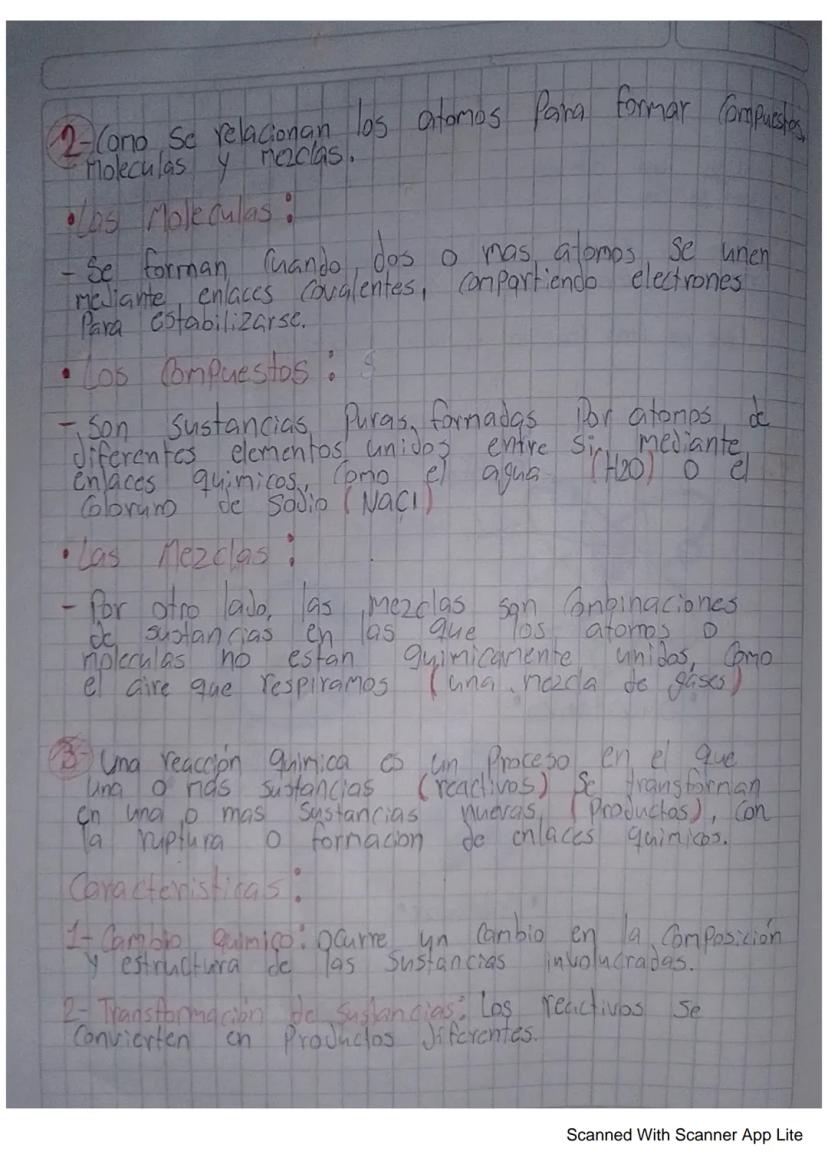 2- Como se relacionan los atomos Para formar Compuestos,
Moleculas y mezclas.
• Las Moleculas:
- Se forman cuando dos o mas atomos se unen
mediante enlaces Covalentes, compartiendo electrones
Para estabilizarse.
• Los Compuestos:
- Son sustancias Puras, formadas Por atomos de
diferentes elementos unidos entre si, mediante
enlaces quimicos, Como el agua (H2O) o el
Coloruro de Sodio (NaCl)
• Las Mezclas:
- Por otro lado, las mezclas son Conbinaciones
de sustancias en las que los atomos o
moleculas no estan quimicamente unidos, como
el aire que respiramos (una mezcla de gases)
3- Una reacción quimica es un Proceso en el que
una o mas sustancias (reactivos) Se transforman
en una o mas Sustancias nuevas, (Productos), con
la ruptura o formacion de enlaces quimicos.
Caracteristicas:
1- Cambio quimico: ocurre un Cambio en la Composición
y estructura de las Sustancias involucradas.
2- Transformación de Sustancias: Los reactivos se
Convierten en Productos diferentes.
Scanned With Scanner App Lite